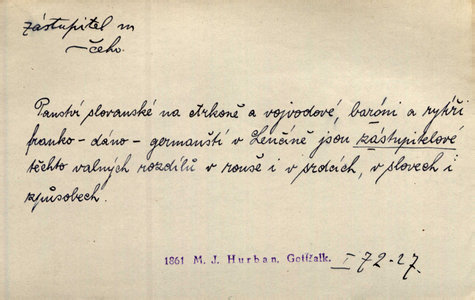 zástupitel m
— čeho.
Panství slovanské na Arkoně a vojvodové, baróni a rytíři
franko-dáno-germanští v Lenčíně jsou zástupitelové
těchto valných rozdílů v rouše i v srdcích, v slovech i
způsobech.
1861 M. J. Hurban, Gottšalk. I 72-27.